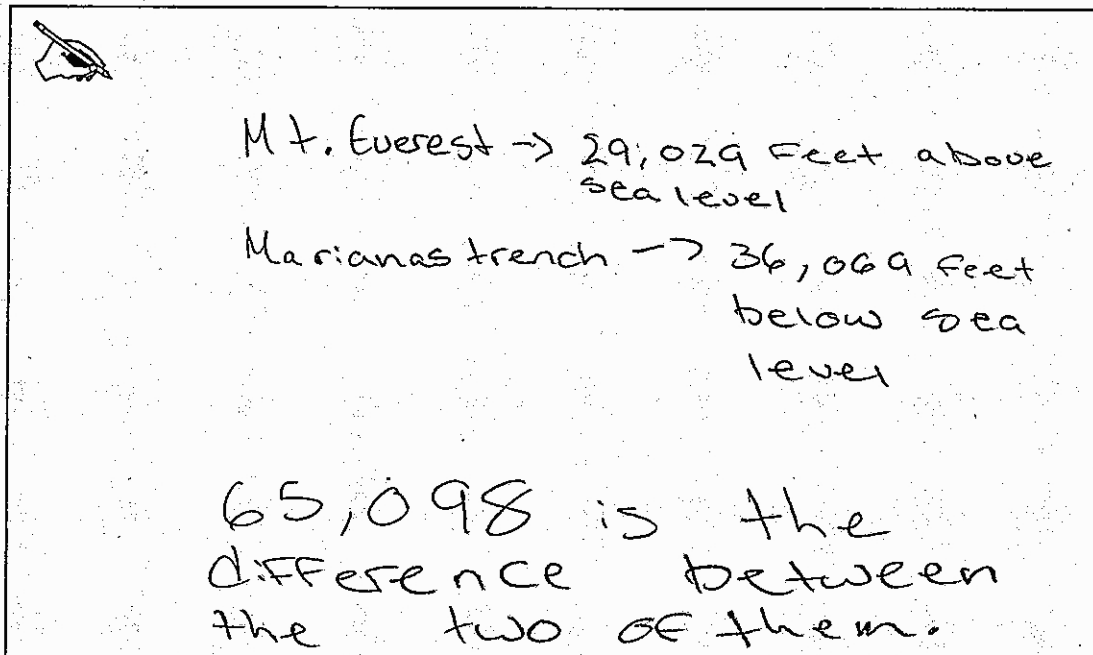 Mt. Everest -> 29,029 Feet above
sea level
Marianas trench -> 36,069 feet
below sea
level
65,098 is the
difference between
the two of them.